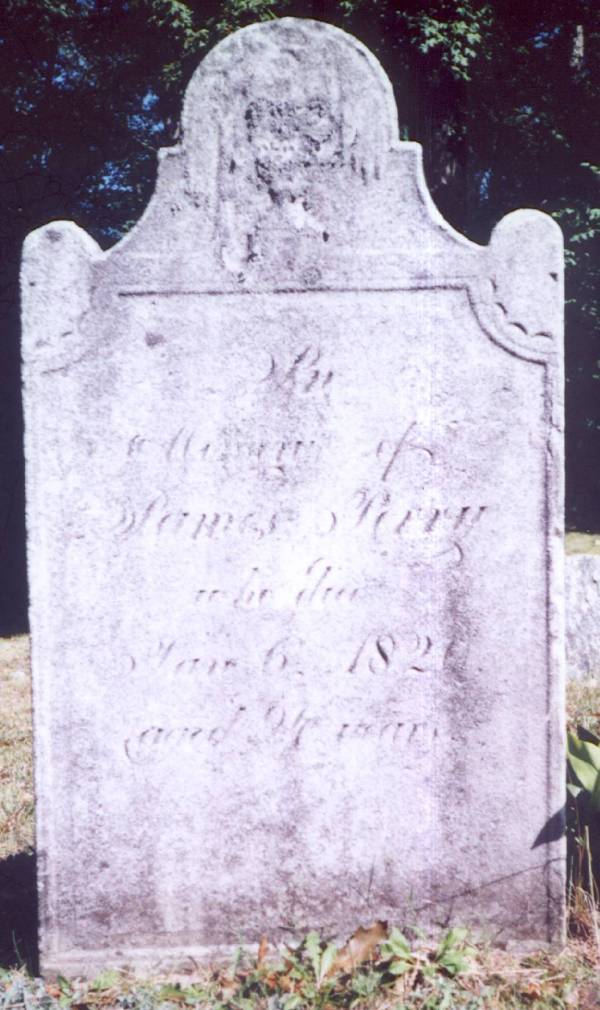 In
Memory of
James Perry
who died
Jan 6
aged years